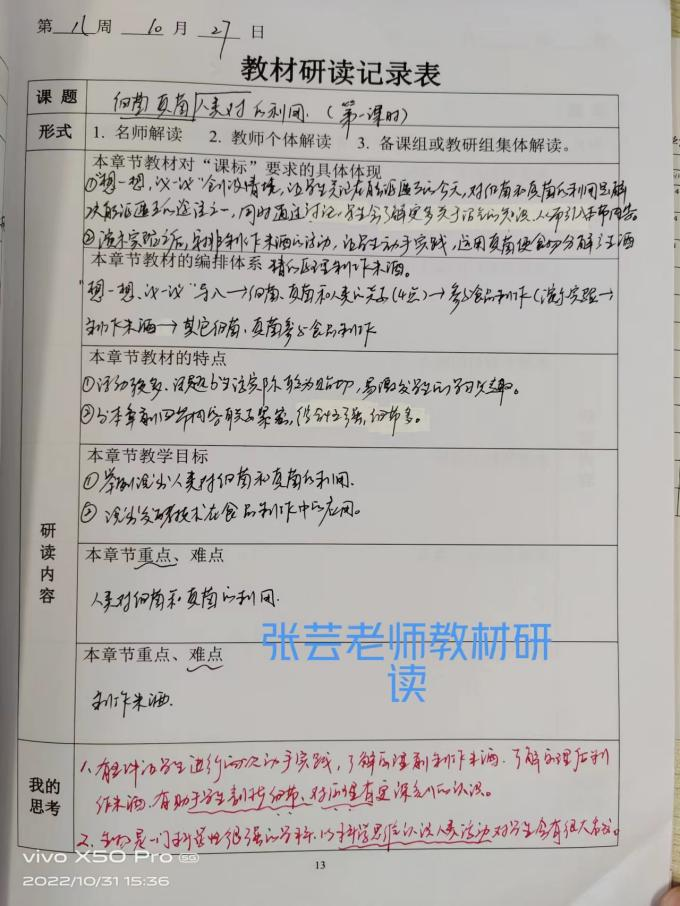 第 八 周 10 月 27 日
教材研读记录表
课 题 细菌真菌人类对的利用.(第一课时)
形式 1. 名师解读 2. 教师个体解读 3. 备课组或教研组集体解读。
本章节教材对“课标”要求的具体体现
①“想一想,议一议”创设情境,让学生在能源匮乏的今天,对细菌和真菌的利用是解
决能源匮乏的途径之一,同时通过讨论,学生会了解更多关于沼气的知识,从而引入本节内容。
②演示实验之后,安排制作米酒的活动,让学生动手实践,运用真菌使食物分解产生酒
本章节教材的编排体系 精的原理制作米酒。
“想一想、议一议”导入→细菌、真菌和人类的关系(4点)→参与食品制作(演示实验→
制作米酒→其它细菌、真菌参与食品制作
本章节教材的特点
①活动较多、话题与生活实际较为贴切,易激发学生的学习兴趣。
②与本章前四节内容联系紧密,
本章节教学目标
①举例说出人类对细菌和真菌的利用.
② 说出发酵技术在食品制作中的应用。
研读内容
本章节重点、难点
人类对细菌和真菌的利用.
本章节重点、难点
制作米酒.
张芸老师教材研
读
我的思考
1、有让学生进行两次动手实践,了解原理前制作米酒.了解原理后制
作米酒.有助于学生对原理有更深刻的认识。
2、生物是一门科学性很强的学科.以科学思维认识人类活动对学生会有很大
vivo X50 Pro 5G
2022/10/31 15:36
13